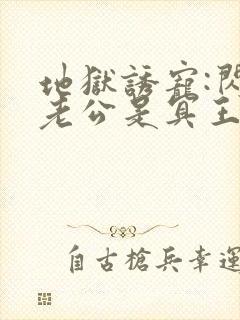 地獄誘寵:閃
老公是冥王
自古槍兵幸運